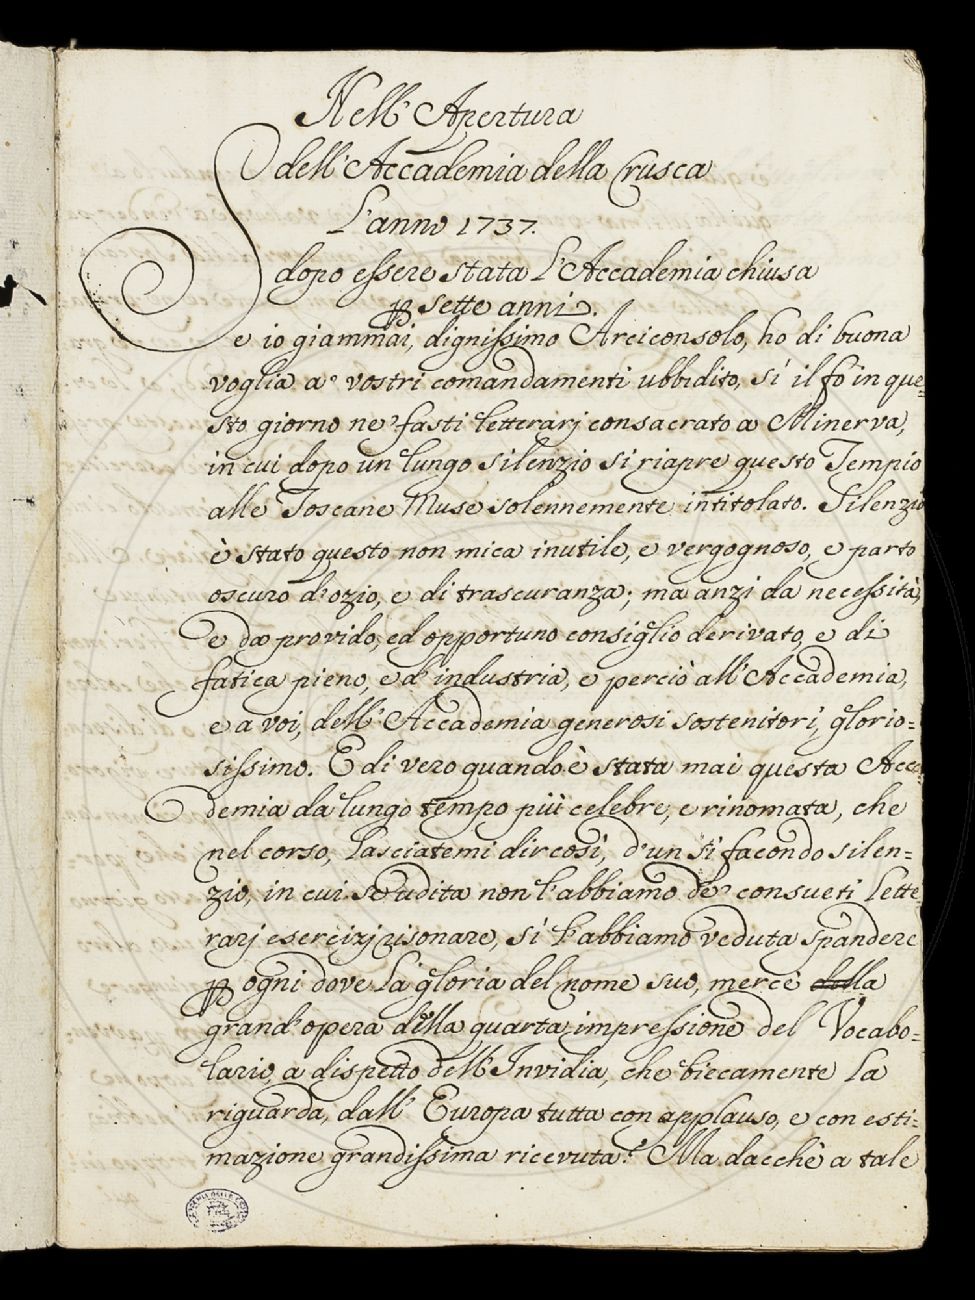 Nell' Apertura
dell' Accademia della Crusca
L'anno 1737.
dopo essere stata L'Accademia chiusa
ꝑ sette anni.
Se io giammai, dignissimo Arciconsolo, ho di buona
voglia a' vostri comandamenti ubbidito, sì il fo in que-
sto giorno ne' fasti letterarj consacrato a Minerva,
in cui dopo un lungo silenzio si riapre questo Tempio
alle Toscane Muse solennemente intitolato. Silenzio
è stato questo non mica inutile, e vergognoso, e parto
oscuro d'ozio, e di trascuranza; ma anzi da necessità,
e da provido, ed opportuno consiglio derivato, e di
fatica pieno, e d' industria, e perciò all' Accademia,
e a voi, dell' Accademia generosi sostenitori, glorio=
sissimo. E di vero quando è stata mai questa Acca=
demia da lungo tempo più celebre, e rinomata, che
nel corso, lasciatemi dir così, d'un sì facondo silen=
zio, in cui se udita non l'abbiamo de' consueti Lette
rarj esercizj risonare, sì l'abbiamo veduta spandere
ꝑ ogni dove la gloria del nome suo, mercè della
grand' opera della quarta impressione del Vocabo=
lario, a dispetto dell' Invidia, che biecamente la
riguarda, dall' Europa tutta con applauso, e con esti=
mazione grandissima ricevuta? Ma dacchè a tale